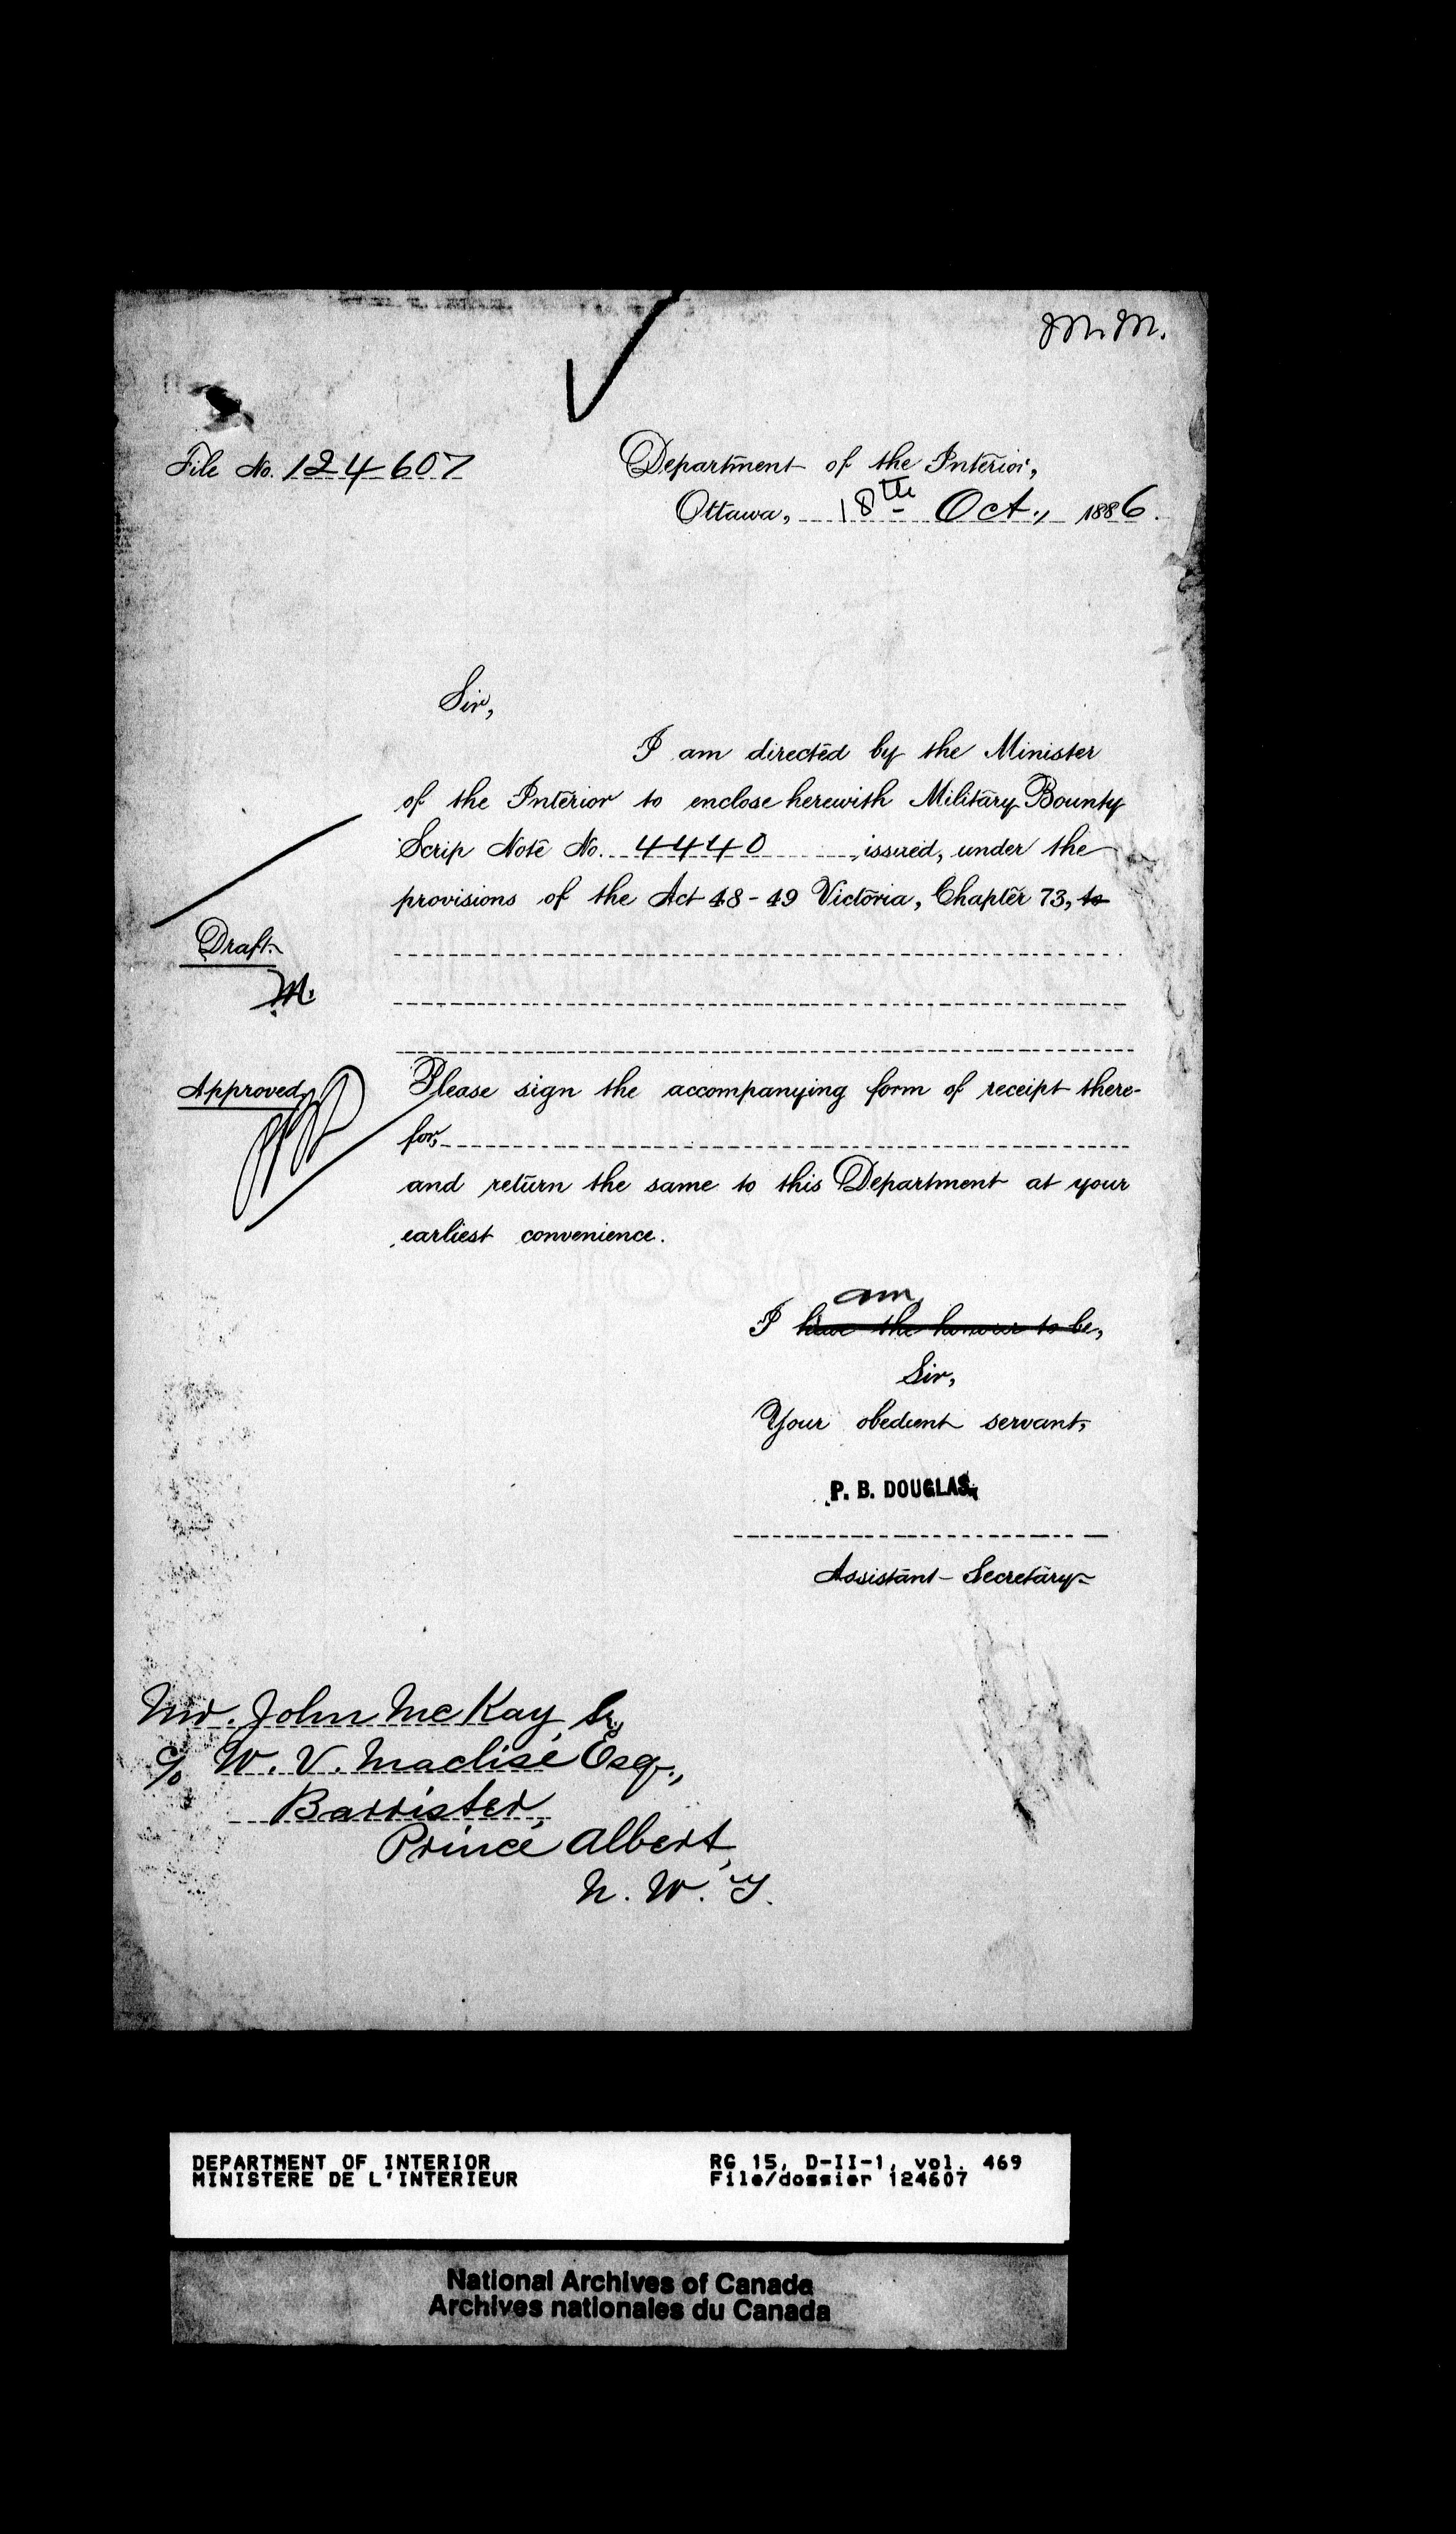 M.M.
File No. 124607
Department of the Interior,
Ottawa, 18th Oct., 1886.
Sir,
I am directed by the Minister
of the Interior to enclose herewith Military Bounty
Scrip Note No. 4440 issued, under the
provisions of the Act 48-49 Victoria, Chapter 73, to
Draft.
M.
Approved,
Please sign the accompanying form of receipt there-
for,
and return the same to this Department at your
earliest convenience.
am,
I have the honour to be,
Sir,
Your obedient servant,
P. B. DOUGLAS,
Assistant-Secretary.
Mr. John McKay, Sr,
c/o W. V. Maclise Esq.,
Barrister,
Prince Albert,
N. W. T.
DEPARTMENT OF INTERIOR
MINISTERE DE L'INTERIEUR
RG 15, D-II-1, vol. 469
File/dossier 124607
National Archives of Canada
Archives nationales du Canada